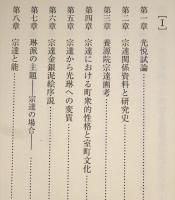 ［Ⅰ］
第一章　光悦試論
第二章　宗達関係資料と研究史
第三章　養源院宗達画考
第四章　宗達における町衆的性格と室町文化
第五章　宗達から光琳への変質
第六章　宗達金銀泥絵序説
第七章　琳派の主題——宗達の場合——
第八章　宗達と能